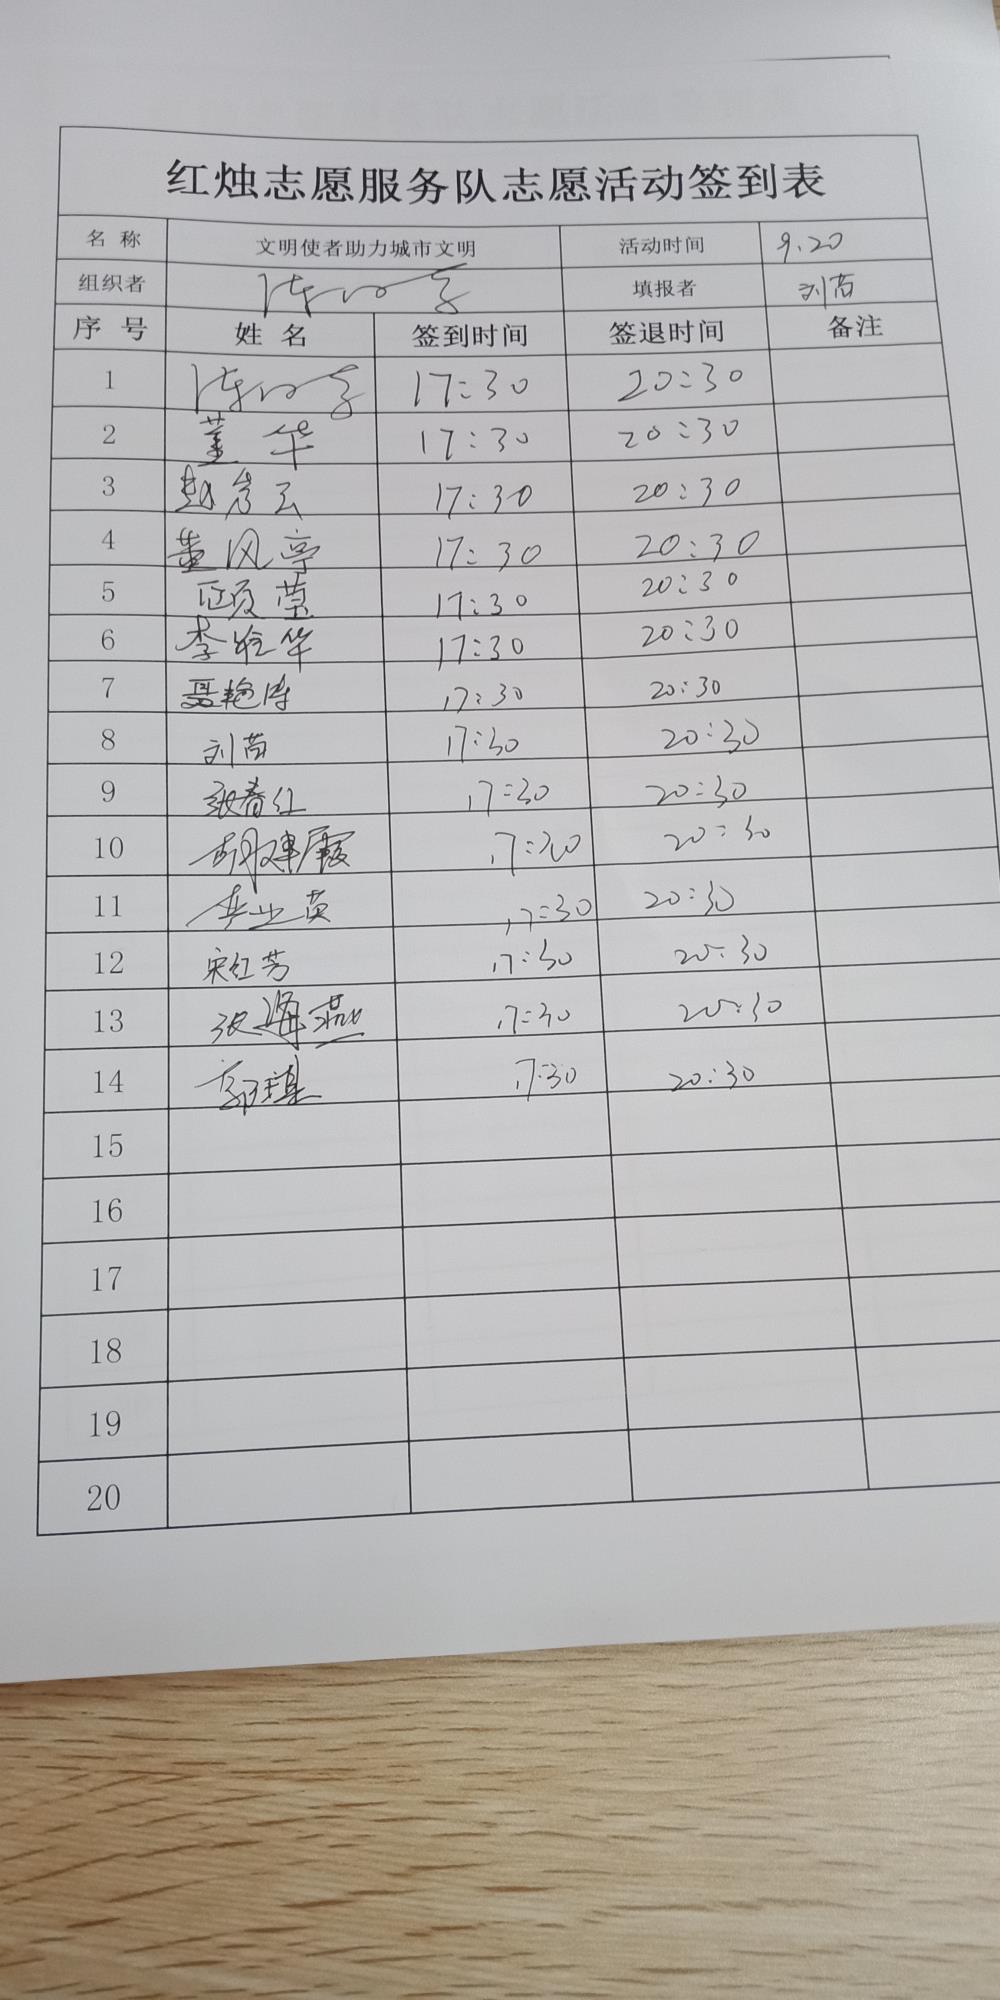 红烛志愿服务队志愿活动签到表
名 称 文明使者助力城市文明 活动时间 9.20
组织者 填报者 刘苗
序 号 姓 名 签到时间 签退时间 备注
1 17:30 20:30
2 董华 17:30 20:30
3 赵彦云 17:30 20:30
4 董风亭 17:30 20:30
5 17:30 20:30
6 17:30 20:30
7 聂艳涛 17:30 20:30
8 刘苗 17:30 20:30
9 张春红 17:30 20:30
10 胡建霞 17:30 20:30
11 李业英 17:30 20:30
12 宋红芳 17:30 20:30
13 张海燕 17:30 20:30
14 17:30 20:30
15
16
17
18
19
20